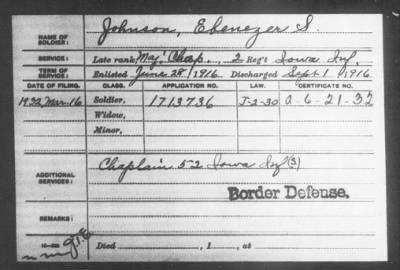 NAME OF SOLDIER: Johnson, Ebenezer S.
SERVICE: Late rank Maj. Chap., 2 Reg't Iowa Inf.
TERM OF SERVICE: Enlisted June 28, 1916. Discharged Sept 1, 1916.
DATE OF FILING. CLASS. APPLICATION NO. LAW. CERTIFICATE NO.
1932 Mar. 16 Soldier, 1713736 J-2-30 a-6-21-32
Widow,
Minor,
ADDITIONAL SERVICES: Chaplain 52 Iowa Inf (S)
Border Defense.
REMARKS:
Died , 1 , at